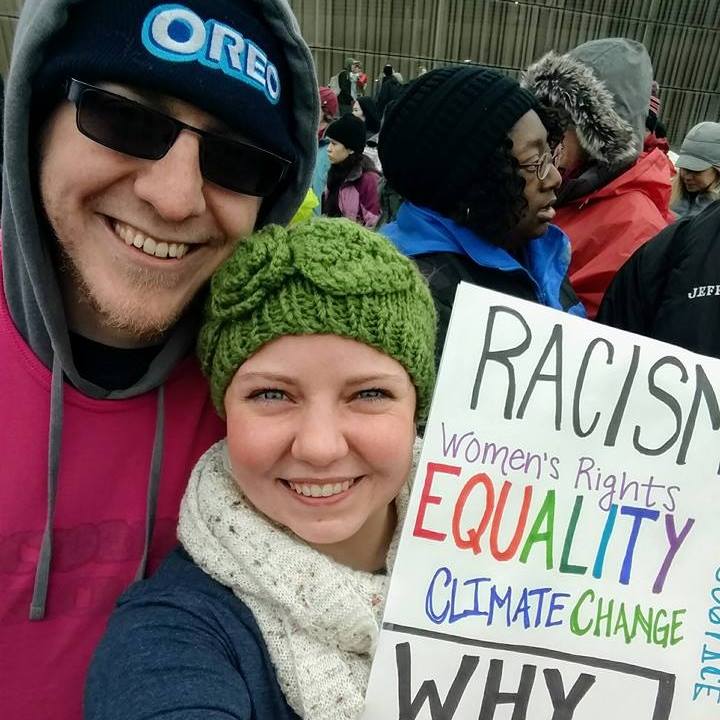 OREO
JEFF
RACISM
Women's Rights
EQUALITY
CLIMATE CHANGE
JUSTICE
WHY